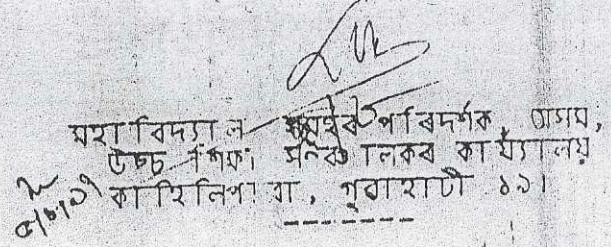 মহাবিদ্যালয় সমূহৰ পৰিদৰ্শক অসম,
উচ্চ শিক্ষা সঞ্চালকৰ কাৰ্য্যালয়
কাহিলিপাৰা, গুৱাহাটী ১৯।